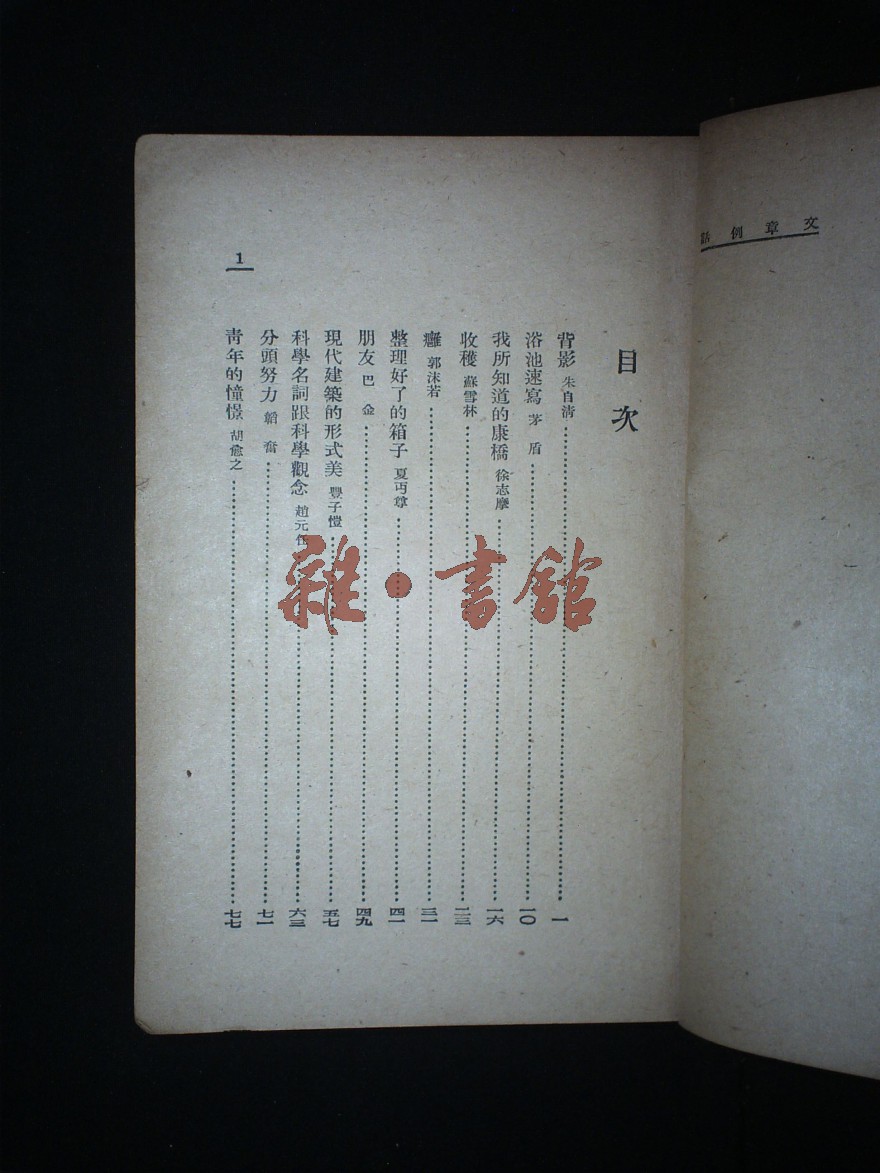 文章例話
目次
背影 朱自清 一
浴池速寫 茅盾 一〇
我所知道的康橋 徐志摩 一六
收穫 蘇雪林 二三
癰 郭沫若 三一
整理好了的箱子 夏丏尊 四一
朋友 巴金 四九
現代建築的形式美 豐子愷 五七
科學名詞跟科學觀念 趙元任 六三
分頭努力 韜奮 七一
靑年的憧憬 胡愈之 七七
1
雜·書館